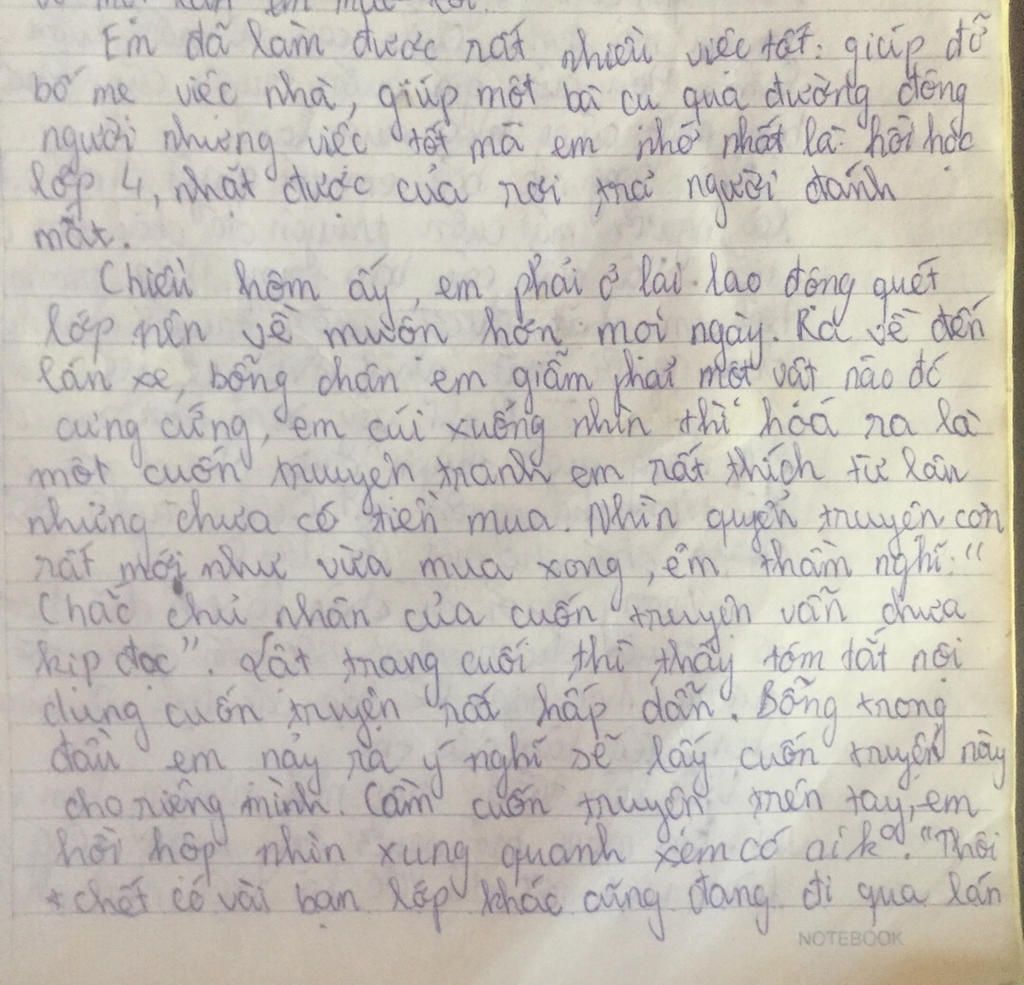 Em đã làm được rất nhiều việc tốt: giúp đỡ
bố mẹ việc nhà, giúp một bà cụ qua đường đông
người nhưng việc tốt mà em nhớ nhất là hồi học
lớp 4, nhặt được của rơi trả người đánh
mất.
Chiều hôm ấy, em phải ở lại lao động quét
lớp nên về muộn hơn mọi ngày. Ra về đến
lán xe, bỗng chân em giẫm phải một vật nào đó
cưng cứng, em cúi xuống nhìn thì hóa ra là
một cuốn truyện tranh em rất thích từ lâu
nhưng chưa có tiền mua. Nhìn quyển truyện còn
rất mới như vừa mua xong, em thầm nghĩ: "
Chắc chủ nhân của cuốn truyện vẫn chưa
kịp đọc". Lật trang cuối thì thấy tóm tắt nội
dung cuốn truyện rất hấp dẫn. Bỗng trong
đầu em nảy ra ý nghĩ sẽ lấy cuốn truyện này
cho riêng mình. Cầm cuốn truyện trên tay, em
hồi hộp nhìn xung quanh xem có ai k°. "Thôi
chết có vài bạn lớp khác cũng đang đi qua lán
NOTEBOOK